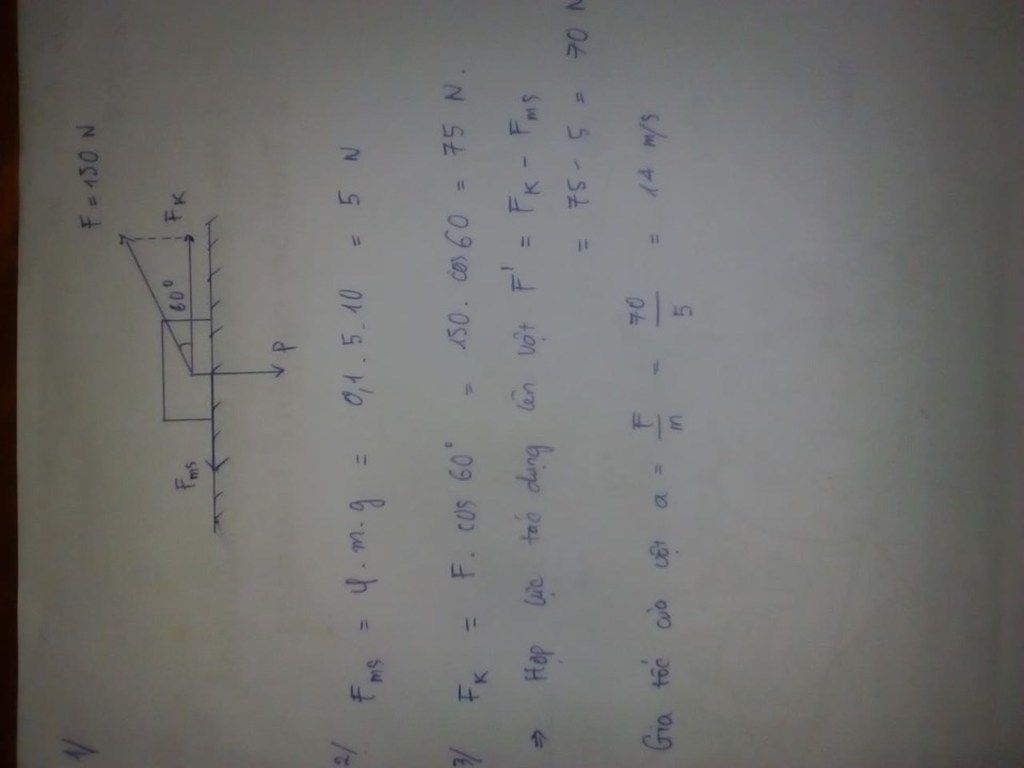 1/
F = 150 N
60°
F_K
F_ms
P
2/ F_ms = φ . m . g = 0,1 . 5 . 10 = 5 N
3/ F_K = F . cos 60° = 150 . cos 60 = 75 N .
⇒ Hợp lực tác dụng lên vật F' = F_K - F_ms
= 75 - 5 = 70 N
Gia tốc của vật a = F/m = 70/5 = 14 m/s